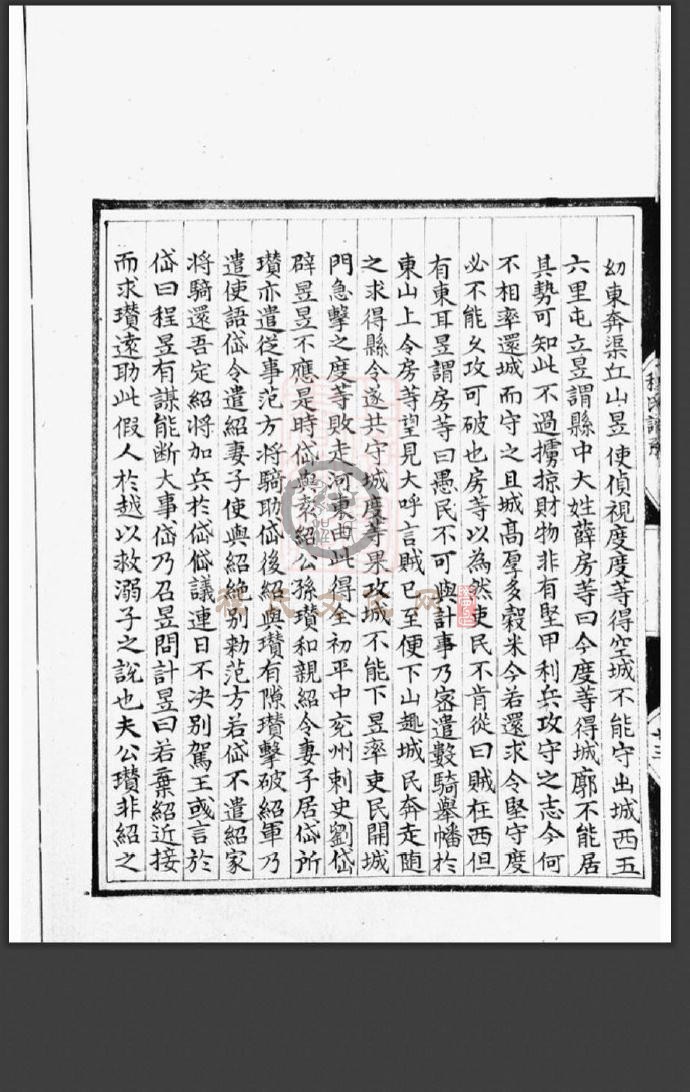 幼東奔渠丘山昱使偵視度度等得空城不能守出城西五
六里屯立昱謂縣中大姓薛房等曰今度等得城廓不能居
其勢可知此不過擄掠財物非有堅甲利兵攻守之志今何
不相率還城而守之且城髙厚多穀米今若還求令堅守度
必不能久攻可破也房等以為然吏民不肯從曰賊在西但
有東耳昱謂房等曰愚民不可與計事乃宻遣數騎舉幡於
東山上令房等望見大呼言賊已至便下山趣城民奔走随
之求得縣令遂共守城度等果攻城不能下昱率吏民開城
門急擊之度等敗走河東由此得全初平中兖州刺史劉岱
辟昱昱不應是時岱與袁紹公孫瓚和親紹令妻子居岱所
瓚亦遣従事范方将騎助岱後紹與瓚有隙瓚擊破紹軍乃
遣使語岱令遣紹妻子使與紹絶别勅范方若岱不遣紹家
将騎還吾定紹将加兵於岱岱議連日不决别駕王彧言於
岱曰程昱有謀能断大事岱乃召昱問計昱曰若棄紹近接
而求瓚遠助此假人於越以救溺子之說也夫公瓚非紹之
移民文化网